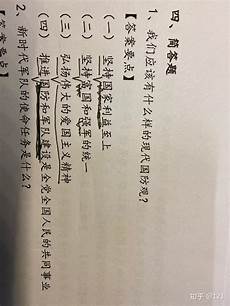 四、简答题
1、我们应该有什么样的现代国防观？
【答案要点】
（一）坚持国家利益至上
（二）坚持富国和强军的统一
（三）弘扬伟大的爱国主义精神
（四）推进国防和军队建设是全党全国人民的共同事业
2、新时代军队的使命任务是什么？
【答案要点】
知乎 @123